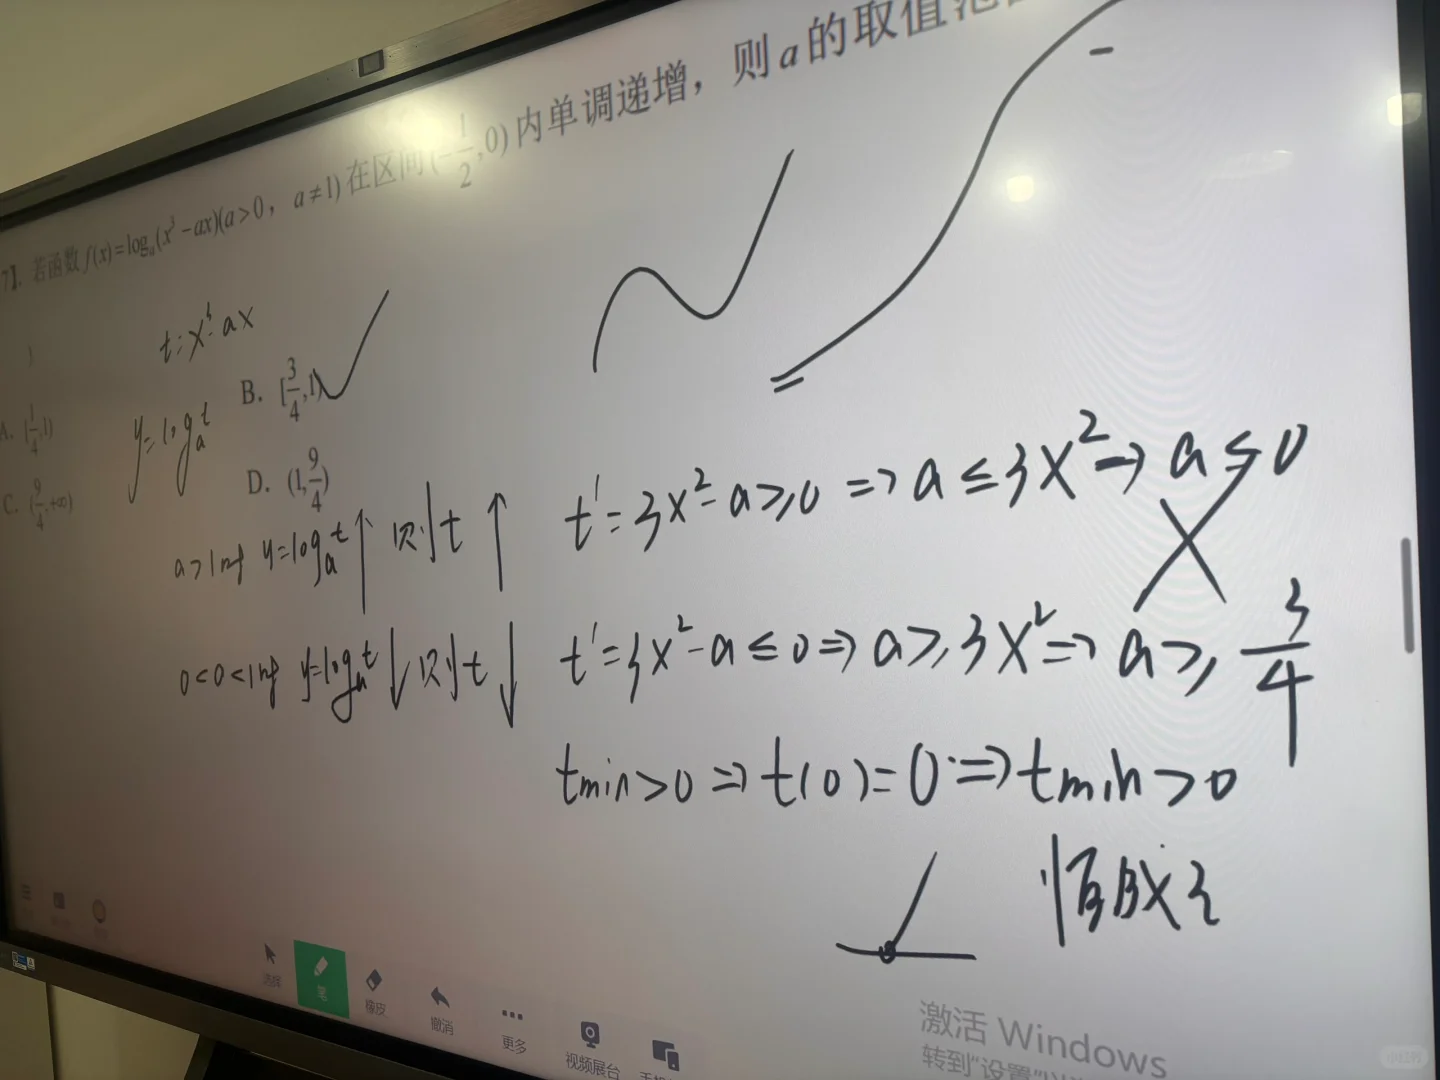 7】. 若函数 f(x)=logₐ(x³-ax)(a>0, a≠1) 在区间 (-1/2,0) 内单调递增，则 a 的取值范
t=x³-ax
A. [1/4,1)
B. [3/4,1)
y=logₐt
C. (9/4,+∞)
D. (1,9/4)
a>1时 y=logₐt↑ 则t↑ t'=3x²-a≥0⇒a≤3x²→a≤0
0<0<1时 y=logₐt↓则t↓ t'=3x²-a≤0⇒a≥3x²⇒a≥3/4
tmin>0⇒t(0)=0⇒tmin>0
恒成立
选择
笔
橡皮
撤消
更多
视频展台
激活 Windows
转到"设置"以
小红书